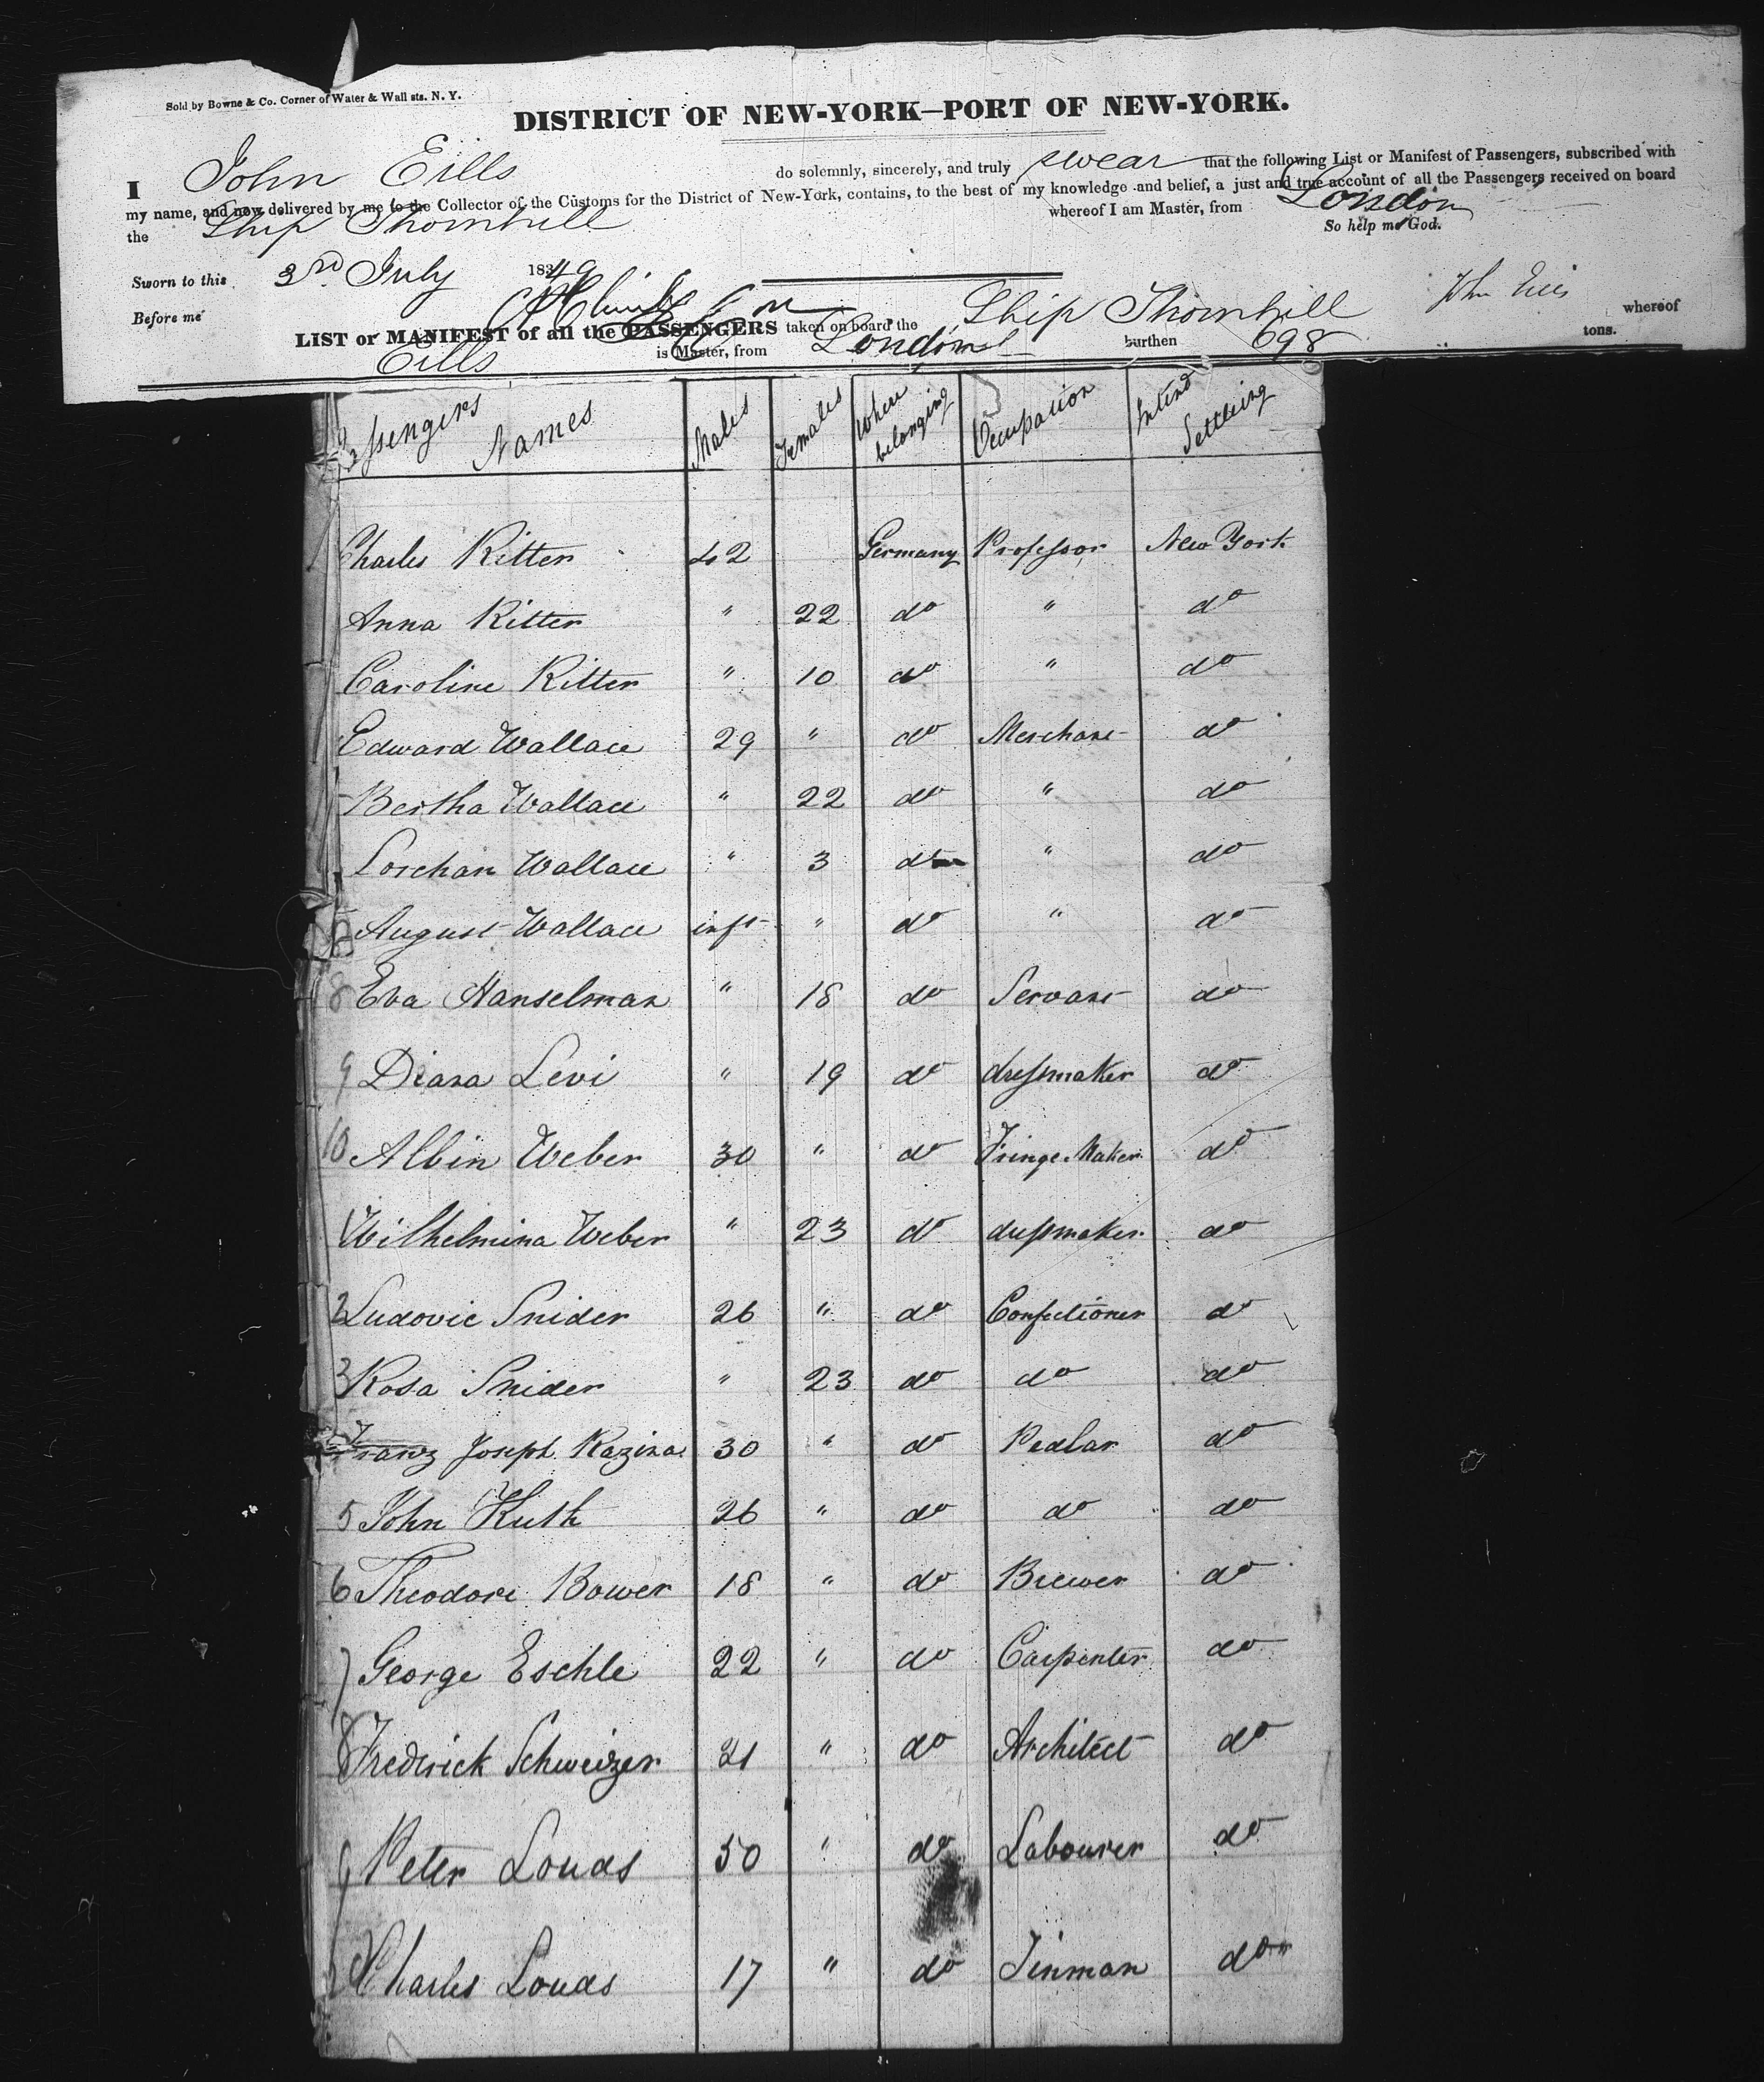 Sold by Bowne & Co. Corner of Water & Wall sts. N. Y.
DISTRICT OF NEW-YORK—PORT OF NEW-YORK.
I John Eills do solemnly, sincerely, and truly swear that the following List or Manifest of Passengers, subscribed with
my name, and now delivered by me to the Collector of the Customs for the District of New-York, contains, to the best of my knowledge and belief, a just and true account of all the Passengers received on board
the Ship Thornhill whereof I am Master, from London
So help me God.
Sworn to this 3rd July 1849
Before me John Eills
LIST or MANIFEST of all the PASSENGERS taken on board the Ship Thornhill whereof
Eills is Master, from London burthen 698 tons.
Passengers Names Males Females Where belonging Occupation Intend Settleing
Charles Ritter 42 Germany Professor New York
Anna Ritter " 22 do " do
Caroline Ritter " 10 do " do
Edward Wallace 29 " do Merchant do
Bertha Wallace " 22 do " do
Lorchan Wallace " 3 do " do
August Wallace inft " do " do
8 Eva Hanselman " 18 do Servant do
9 Diana Levi " 19 do dressmaker do
10 Albin Weber 30 " do Fringe Maker do
1 Wilhelmina Weber " 23 do dressmaker do
2 Ludovic Snider 26 " do Confectioner do
3 Rosa Snider " 23 do do do
Franz Joseph Kazina 30 " do Pedlar do
5 John Huth 26 " do do do
6 Theodore Bower 18 " do Brewer do
7 George Eschle 22 " do Carpenter do
8 Frederick Schweizer 21 " do Architect do
9 Peter Louas 50 " do Labourer do
Charles Louas 17 " do Tinman do